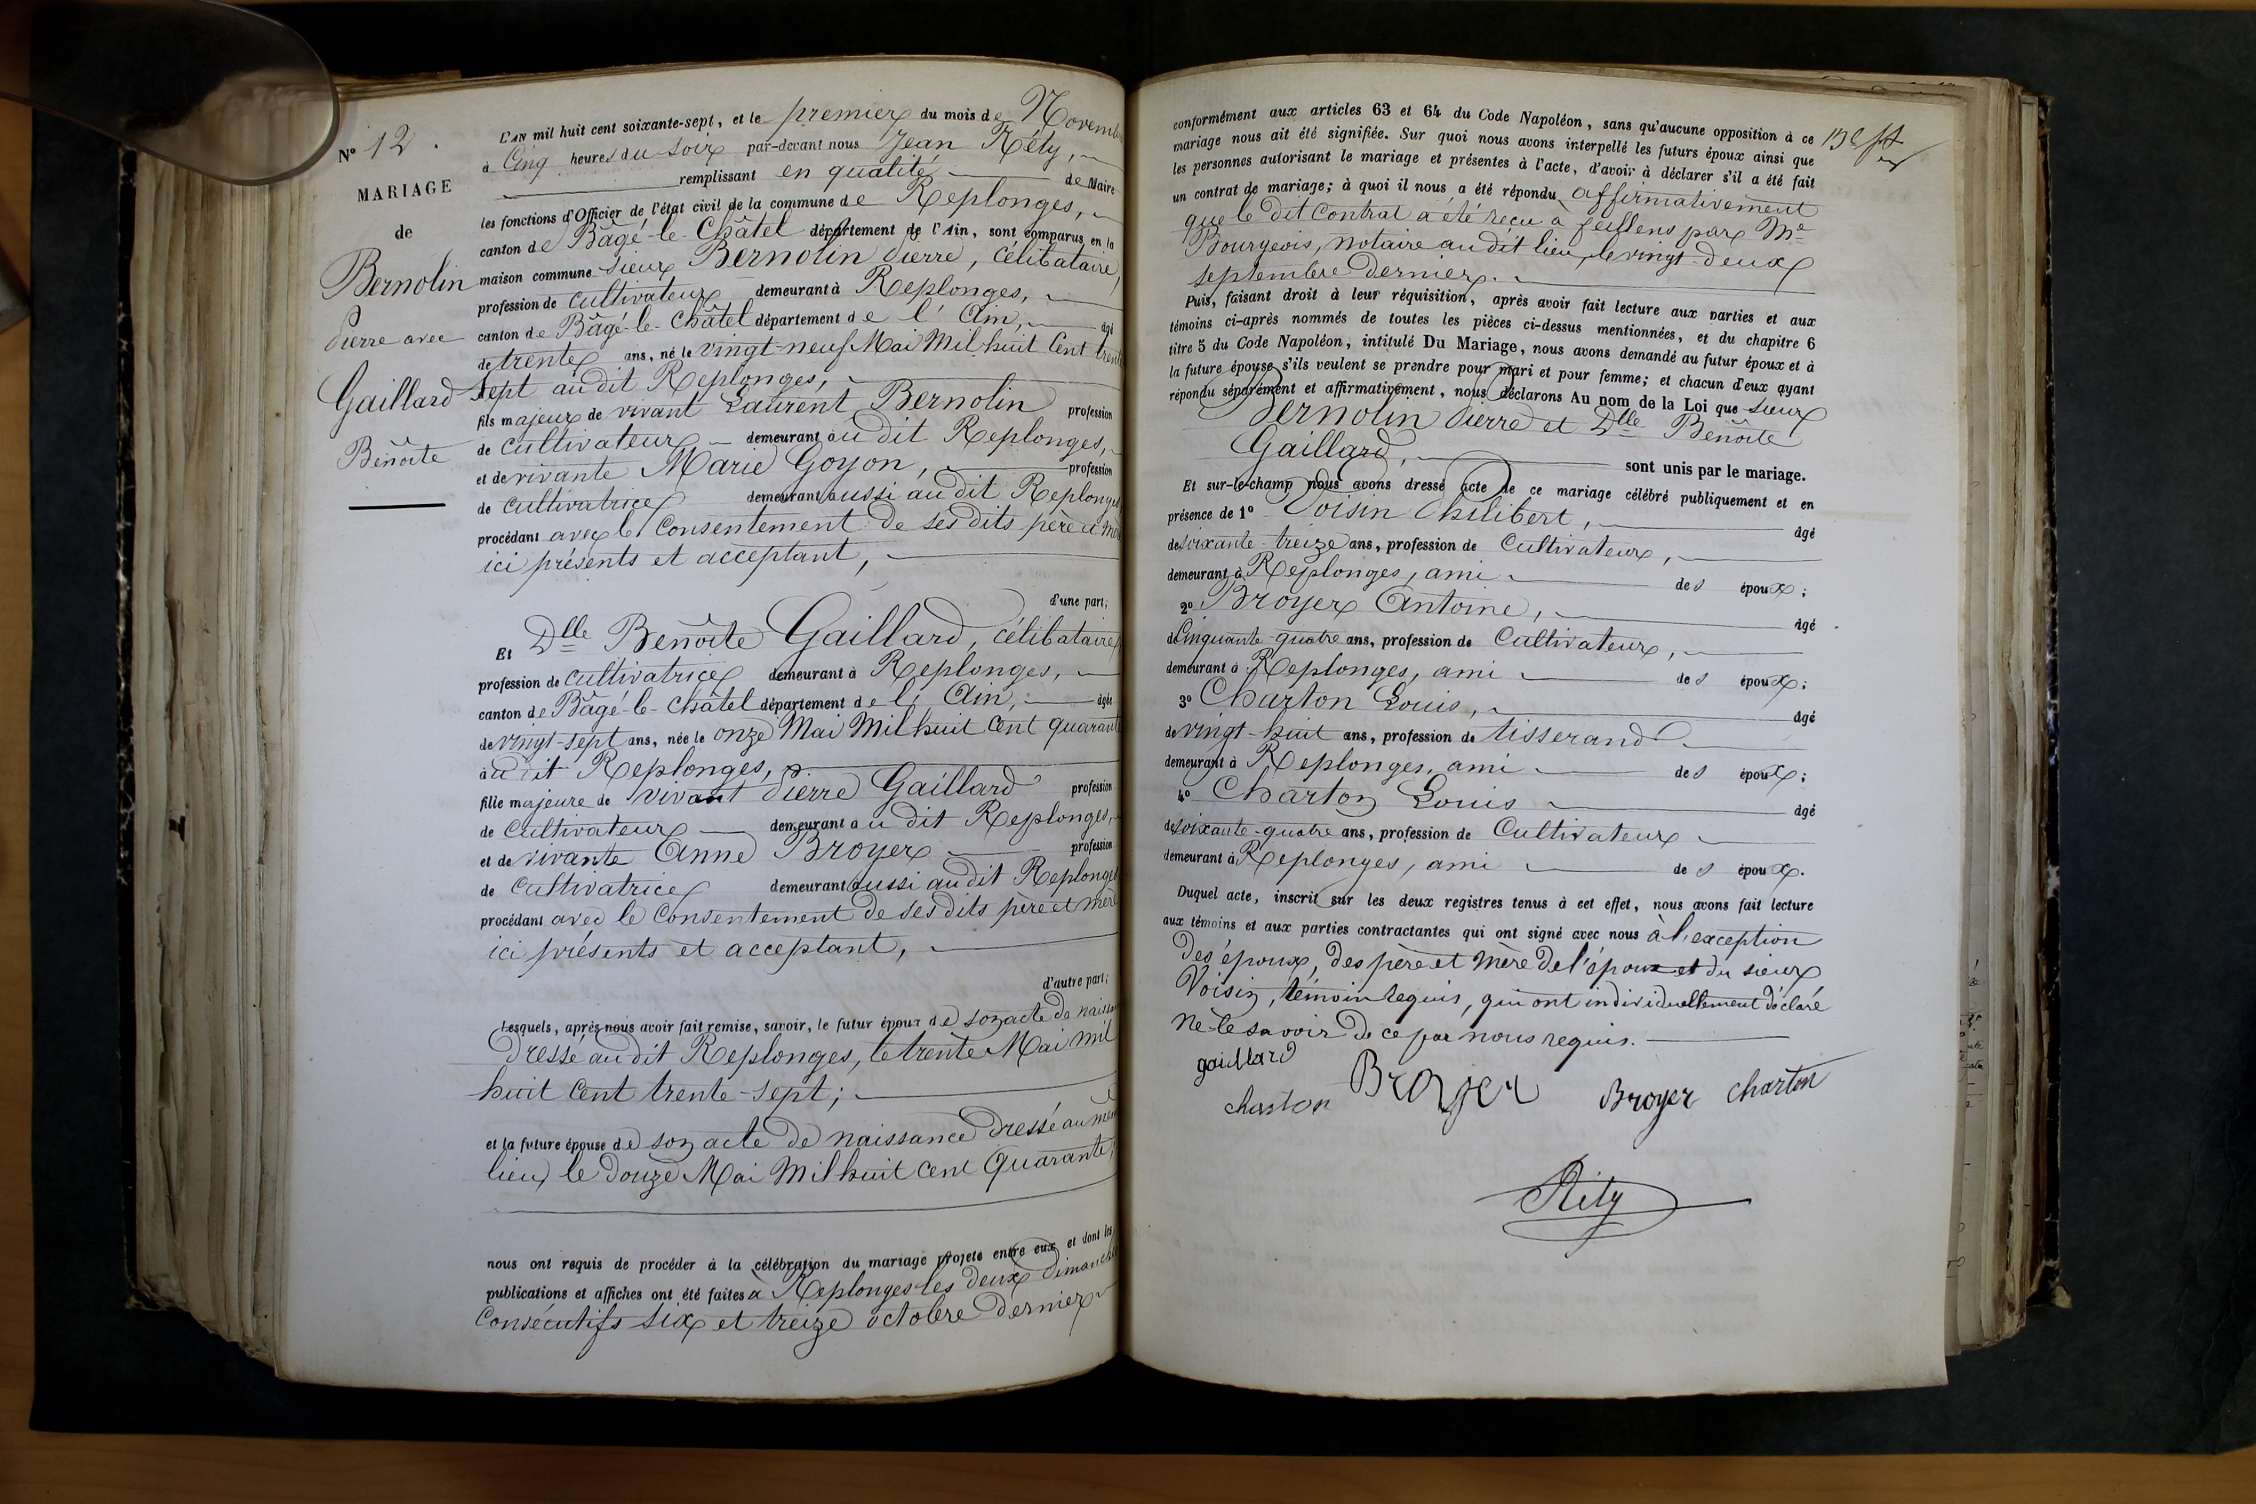 N° 12.
MARIAGE
de
Bernolin
Pierre avec
Gaillard
Benoîte
L'AN mil huit cent soixante-sept, et le premier du mois de Novembre
à Cinq heures du soir par-devant nous Jean Rély,
remplissant en qualité de Maire
les fonctions d'Officier de l'état civil de la commune de Replonges,
canton de Bâgé-le-Châtel département de l'Ain, sont comparus en la
maison commune sieur Bernolin Pierre, célibataire,
profession de cultivateur demeurant à Replonges,
canton de Bâgé-le-Châtel département de l'Ain, âgé
de trente ans, né le vingt-neuf Mai Mil huit Cent trente
sept au dit Replonges,
fils majeur de vivant Laurent Bernolin profession
de cultivateur demeurant au dit Replonges,
et de vivante Marie Goyon, profession
de cultivatrice demeurant aussi au dit Replonges
procédant avec le consentement de ses dits père et mère
ici présents et acceptant,
d'une part;
Et Dlle Benoîte Gaillard, célibataire,
profession de cultivatrice demeurant à Replonges,
canton de Bâgé-le-Châtel département de l'Ain, âgée
de vingt-sept ans, née le onze Mai Mil huit Cent quarante
au dit Replonges,
fille majeure de vivant Pierre Gaillard profession
de cultivateur demeurant au dit Replonges,
et de vivante Anne Broyer profession
de cultivatrice demeurant aussi au dit Replonges
procédant avec le consentement de ses dits père et mère
ici présents et acceptant,
d'autre part;
Lesquels, après nous avoir fait remise, savoir, le futur époux de son acte de naissance
dressé au dit Replonges, le trente Mai mil
huit cent trente-sept;
et la future épouse de son acte de naissance dressé au même
lieu le douze Mai Mil huit cent Quarante;
nous ont requis de procéder à la célébration du mariage projeté entre eux et dont les
publications et affiches ont été faites à Replonges les deux dimanches
consécutifs six et treize octobre dernier
conformément aux articles 63 et 64 du Code Napoléon, sans qu'aucune opposition à ce
mariage nous ait été signifiée. Sur quoi nous avons interpellé les futurs époux ainsi que
les personnes autorisant le mariage et présentes à l'acte, d'avoir à déclarer s'il a été fait
un contrat de mariage; à quoi il nous a été répondu affirmativement
que le dit contrat a été reçu à feillens par Me
Bourgeois, notaire au dit lieu, le vingt-deux
septembre dernier.
Puis, faisant droit à leur réquisition, après avoir fait lecture aux parties et aux
témoins ci-après nommés de toutes les pièces ci-dessus mentionnées, et du chapitre 6
titre 5 du Code Napoléon, intitulé Du Mariage, nous avons demandé au futur époux et à
la future épouse s'ils veulent se prendre pour mari et pour femme; et chacun d'eux ayant
répondu séparément et affirmativement, nous déclarons Au nom de la Loi que sieur
Bernolin Pierre et Dlle Benoîte
Gaillard, sont unis par le mariage.
Et sur-le-champ nous avons dressé acte de ce mariage célébré publiquement et en
présence de 1° Voisin Philibert, âgé
de soixante-treize ans, profession de Cultivateur,
demeurant à Replonges, ami des époux;
2° Broyer Antoine, âgé
de Cinquante-quatre ans, profession de Cultivateur,
demeurant à Replonges, ami des époux;
3° Charton Louis, âgé
de vingt-huit ans, profession de tisserand
demeurant à Replonges, ami des époux;
4° Charton Louis âgé
de soixante-quatre ans, profession de Cultivateur
demeurant à Replonges, ami des époux.
Duquel acte, inscrit sur les deux registres tenus à cet effet, nous avons fait lecture
aux témoins et aux parties contractantes qui ont signé avec nous à l'exception
des époux, des père et mère de l'époux et du sieur
Voisin, témoin requis, qui ont individuellement déclaré
ne le savoir de ce par nous requis.
gaillard
charton Broyer Broyer charton
Rély